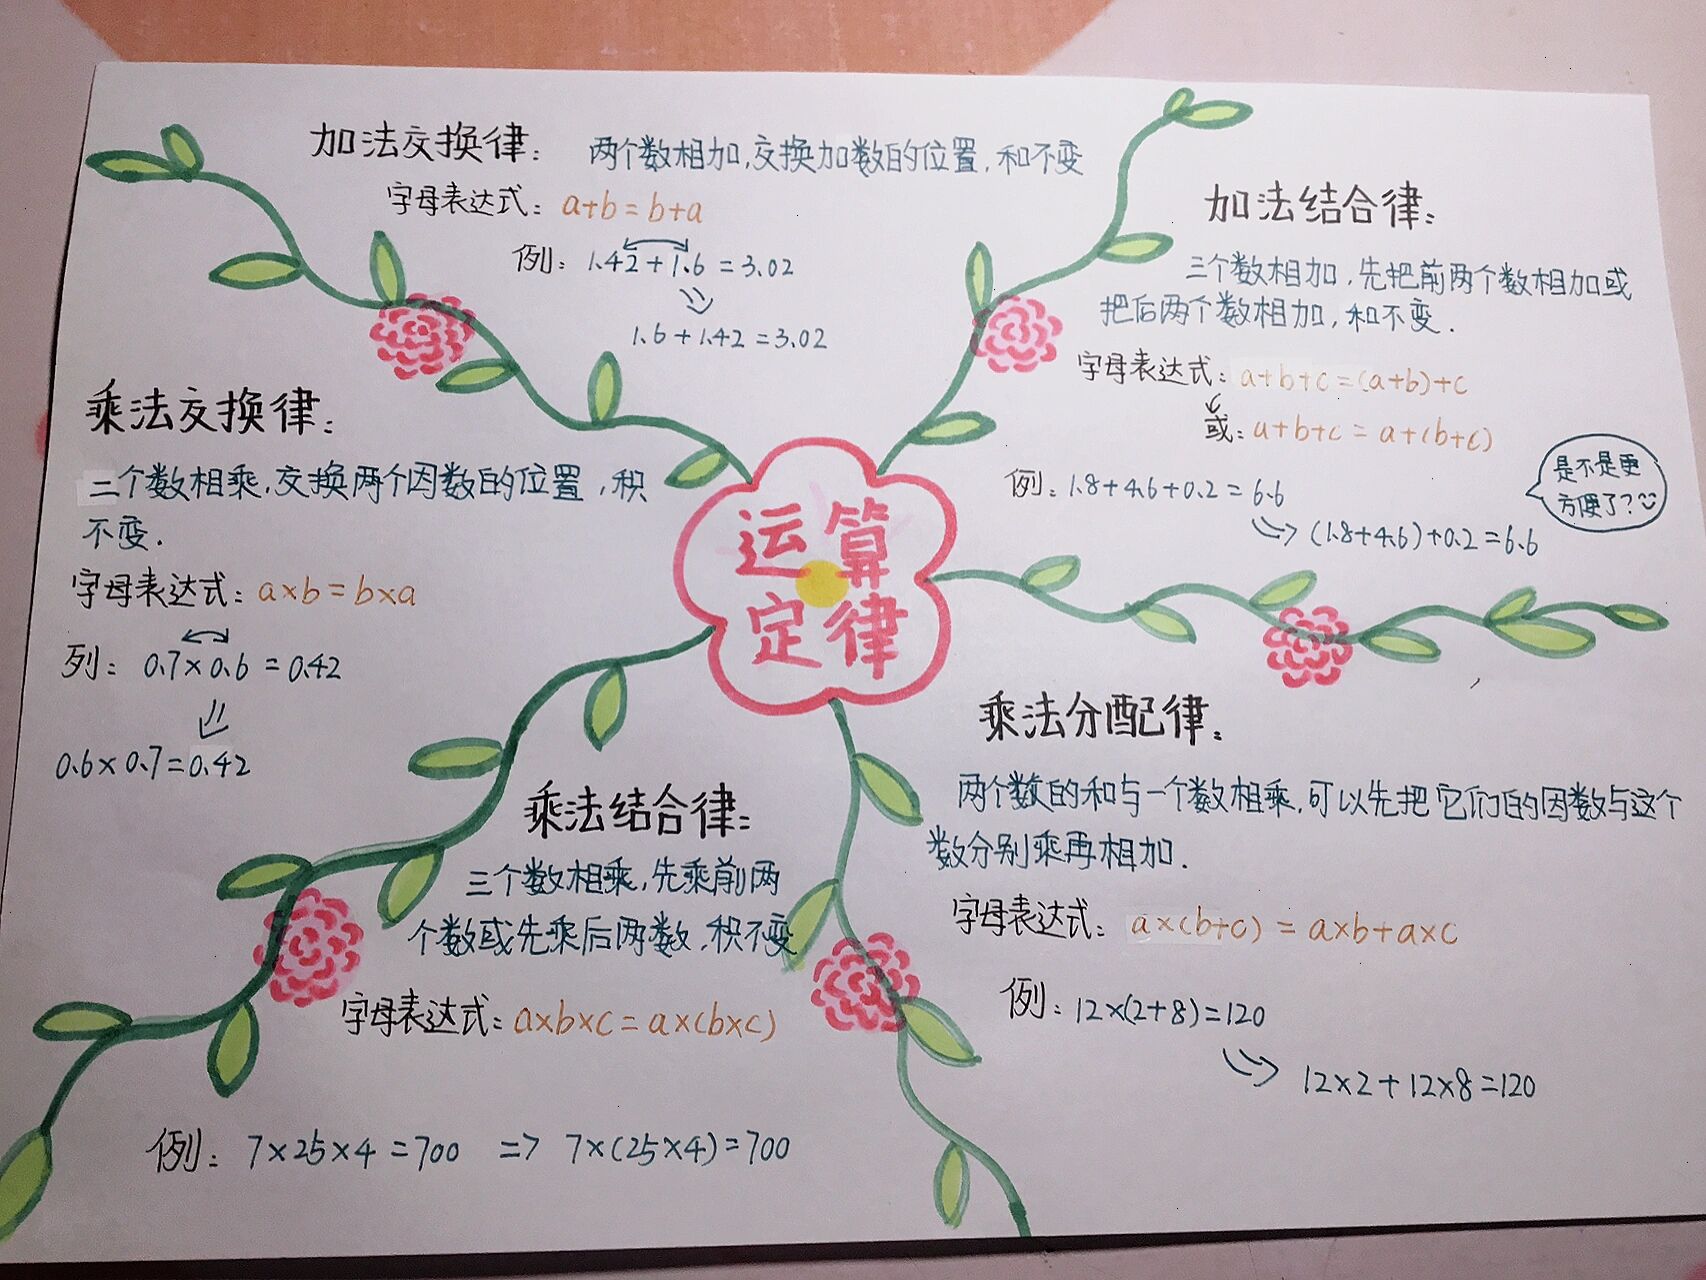 加法交换律： 两个数相加,交换加数的位置,和不变
字母表达式: a+b=b+a
例: 1.42+1.6=3.02
1.6+1.42=3.02
加法结合律:
三个数相加,先把前两个数相加或
把后两个数相加,和不变.
字母表达式: a+b+c=(a+b)+c
或: a+b+c=a+(b+c)
例: 1.8+4.6+0.2=6.6
(1.8+4.6)+0.2=6.6
是不是更
方便了?
乘法交换律:
二个数相乘,交换两个因数的位置,积
不变.
字母表达式: a×b=b×a
列: 0.7×0.6=0.42
0.6×0.7=0.42
运算
定律
乘法分配律:
两个数的和与一个数相乘,可以先把它们的因数与这个
数分别乘再相加.
字母表达式: a×(b+c)=a×b+a×c
例: 12×(2+8)=120
12×2+12×8=120
乘法结合律:
三个数相乘,先乘前两
个数或先乘后两数,积不变
字母表达式: a×b×c=a×(b×c)
例: 7×25×4=700 => 7×(25×4)=700